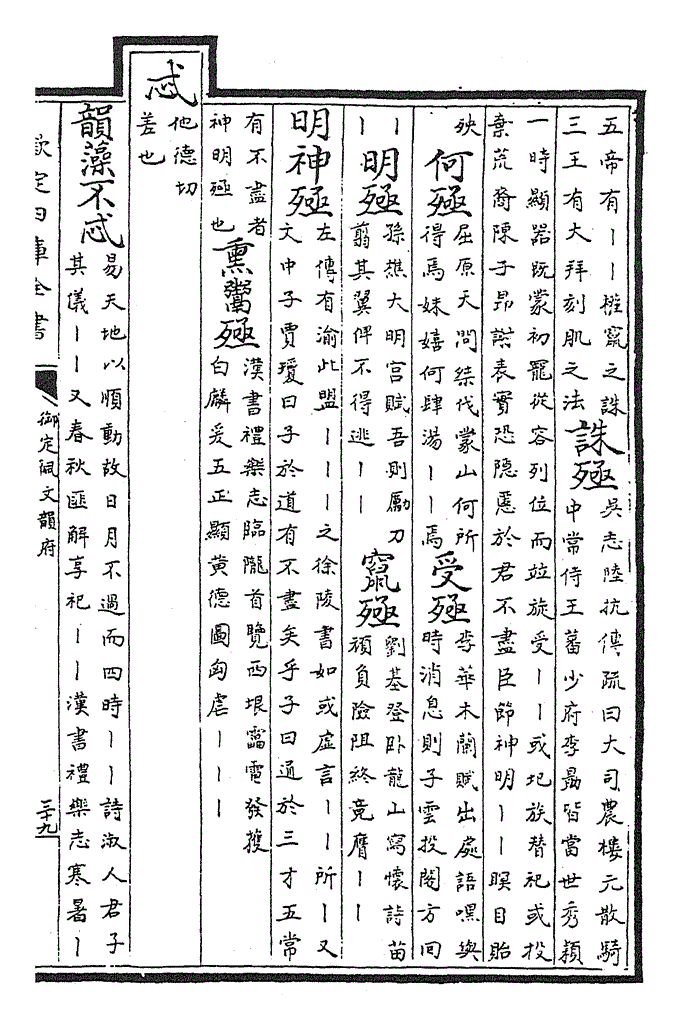 五帝有丨丨摧竄之誅
三王有大拜刻肌之法
誅殛
吳志陸抗傳疏曰大司農樓元散騎
中常侍王蕃少府李勗皆當世秀穎
一時顯器既蒙初寵從容列位而竝旋受丨丨或圮族替祀或投
棄荒裔陳子昻謝表實恐隱慝於君不盡臣節神明丨丨瞑目貽
殃
何殛
屈原天問桀伐蒙山何所
得焉妹嬉何肆湯丨丨焉
受殛
李華木蘭賦出處語嘿與
時消息則子雲投閣方回
丨
明殛
孫樵大明宫賦吾則勵刀
翦其翼俾不得逃丨丨
竄殛
劉基登卧龍山寫懷詩苗
頑負險阻終竟膺丨丨
明神殛
左傳有渝此盟丨丨丨之徐陵書如或虚言丨丨所丨又
文中子賈瓊曰子於道有不盡矣乎子曰通於三才五常
有不盡者
神明殛也
熏鬻殛
漢書禮樂志臨隴首覽西垠靁電發獲
白麟爰五止顯黄德圖匈虐丨丨丨
忒
他德切
差也
韻藻
不忒
易天地以順動故日月不過而四時丨丨詩淑人君子
其儀丨丨又春秋匪解享祀丨丨漢書禮樂志寒暑丨
欽定四庫全書
御定佩文韻府
三十九